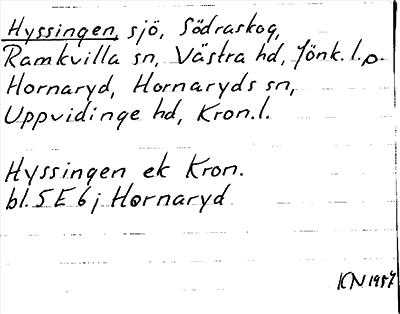 Hyssingen, sjö, Södraskog,
Ramkvilla sn, Västra hd, Jönk. l. o.
Hornaryd, Hornaryds sn,
Uppvidinge hd, Kron. l.
Hyssingen ek Kron.
bl. 5 E 6 j Hornaryd
KN 1987